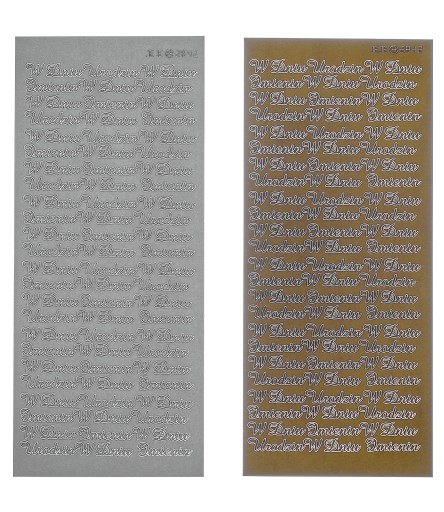 W Dniu Urodzin W Dniu
Imienin W Dniu Urodzin
W Dniu Imienin W Dniu
Urodzin W Dniu Imienin
W Dniu Urodzin W Dniu
Imienin W Dniu Urodzin
W Dniu Imienin W Dniu
Urodzin W Dniu Imienin
W Dniu Urodzin W Dniu
Imienin W Dniu Urodzin
W Dniu Imienin W Dniu
Urodzin W Dniu Imienin
W Dniu Urodzin W Dniu
Imienin W Dniu Urodzin
W Dniu Imienin W Dniu
Urodzin W Dniu Imienin
W Dniu Urodzin W Dniu
Imienin W Dniu Urodzin
W Dniu Imienin W Dniu
Urodzin W Dniu Imienin
W Dniu Urodzin W Dniu
Imienin W Dniu Urodzin
W Dniu Imienin W Dniu
Urodzin W Dniu Imienin
W Dniu Urodzin W Dniu
Imienin W Dniu Urodzin
W Dniu Imienin W Dniu
Urodzin W Dniu Imienin
W Dniu Urodzin W Dniu
Imienin W Dniu Urodzin
W Dniu Imienin W Dniu
Urodzin W Dniu Imienin
W Dniu Urodzin W Dniu
Imienin W Dniu Urodzin
W Dniu Imienin W Dniu
Urodzin W Dniu Imienin
W Dniu Urodzin W Dniu
Imienin W Dniu Urodzin
W Dniu Imienin W Dniu
Urodzin W Dniu Imienin
W Dniu Urodzin W Dniu
Imienin W Dniu Urodzin
W Dniu Imienin W Dniu
Urodzin W Dniu Imienin
W Dniu Urodzin W Dniu
Imienin W Dniu Urodzin
W Dniu Imienin W Dniu
Urodzin W Dniu Imienin